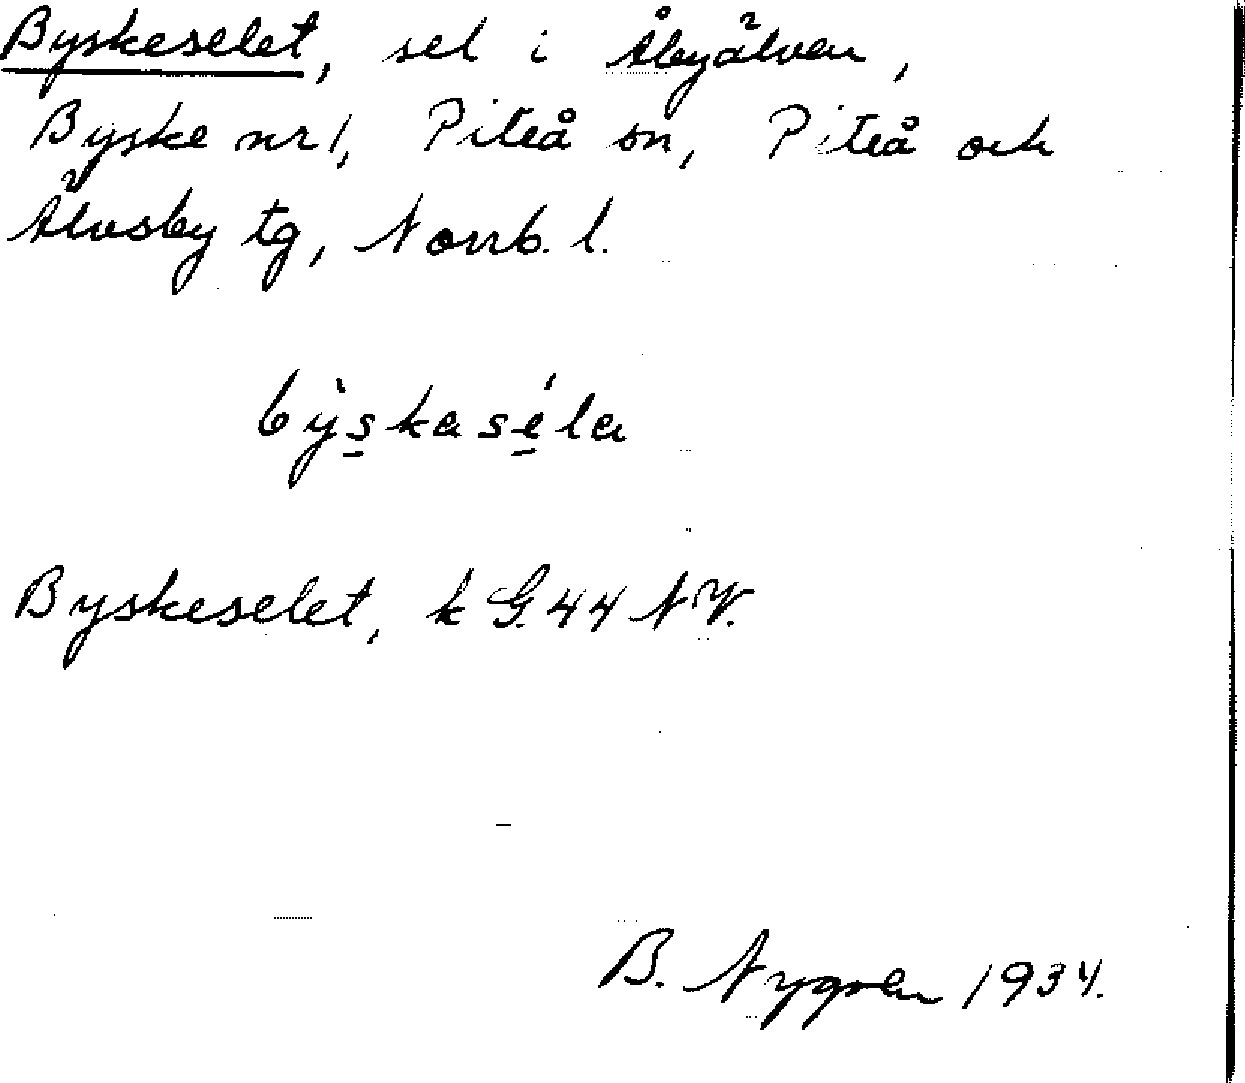 Byskeselet, sel i Åbyälven,
Byske nr 1, Piteå sn, Piteå och
Älvsby tg, Norrb. l.
bỳskaséla
Byskeselet, k G. 44 N V.
B. Nygren 1934.